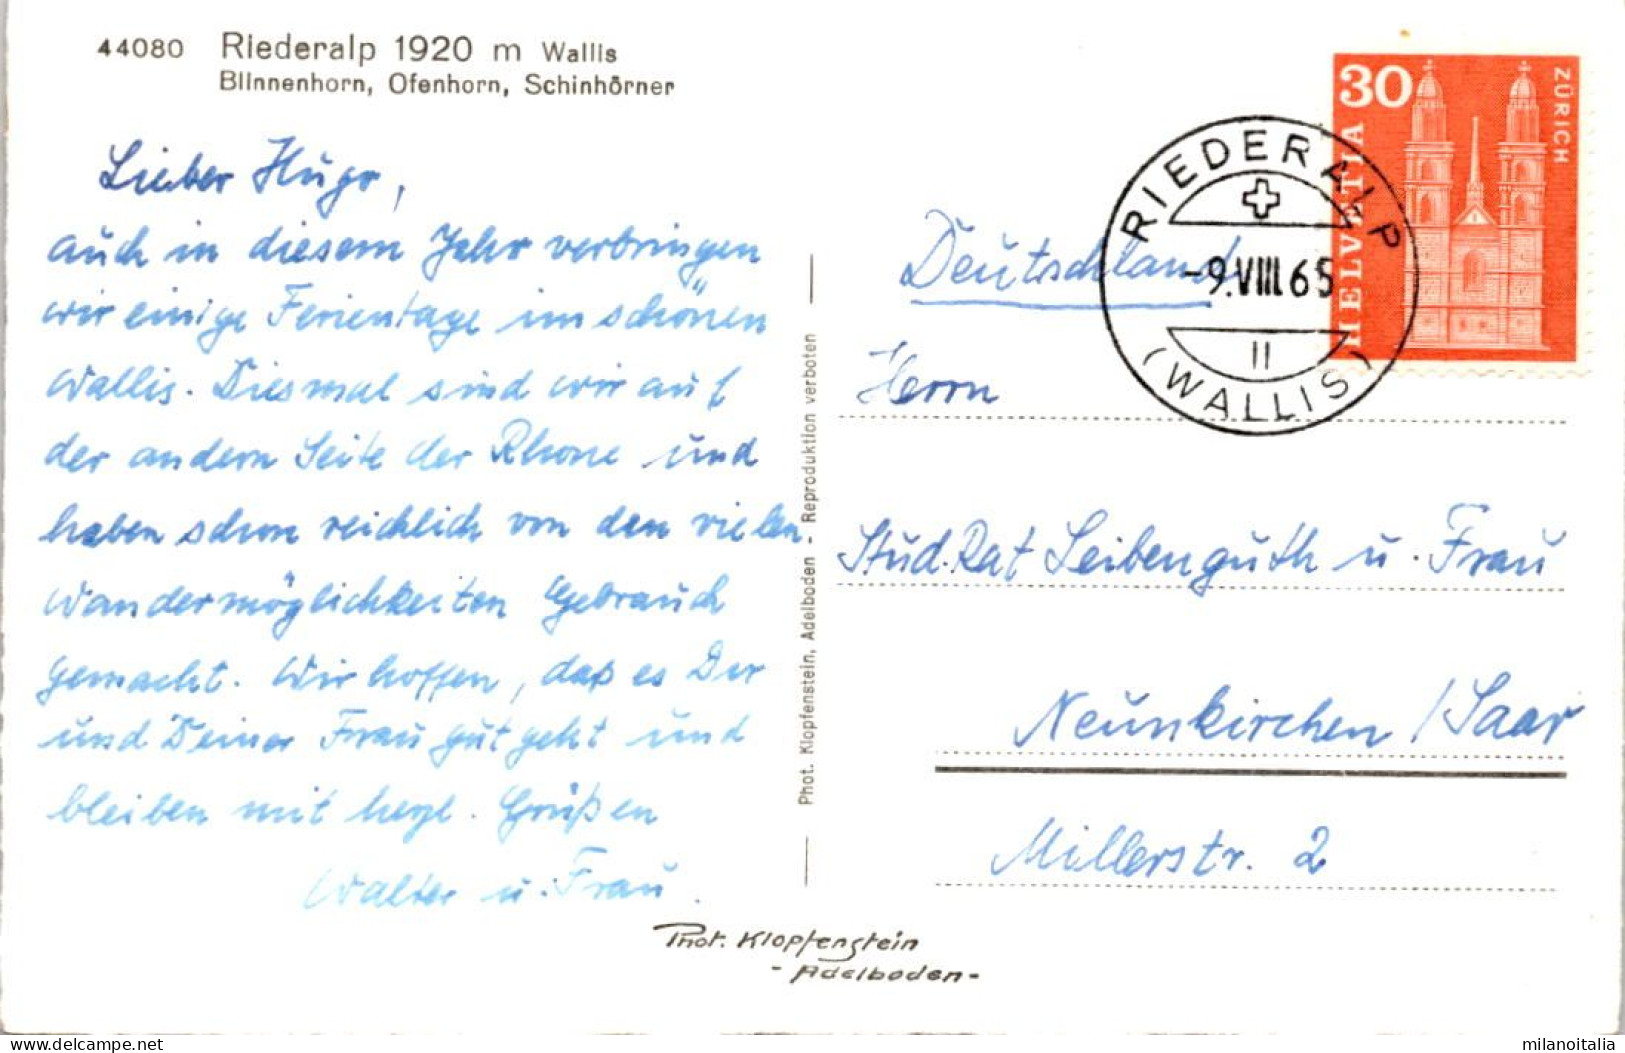 44080 Riederalp 1920 m Wallis
Blinnenhorn, Ofenhorn, Schinhörner
Lieber Hugo,
auch in diesem Jahr verbringen
wir einige Ferientage im schönen
Wallis. Diesmal sind wir auf
der andern Seite der Rhone und
haben schon reichlich von den vielen
Wandermöglichkeiten Gebrauch
gemacht. Wir hoffen, daß es Dir
und Deiner Frau gut geht und
bleiben mit herzl. Grüßen
Walter u. Frau.
Phot. Klopfenstein, Adelboden - Reproduktion verboten
Phot. Klopfenstein
- Adelboden -
30
HELVETIA
ZÜRICH
RIEDERALP
-9.VIII.65
II
(WALLIS)
Deutschland
Herrn
Stud.Rat Leibenguth u. Frau
Neunkirchen/Saar
Millerstr. 2
delcampe.net
milanoitalia